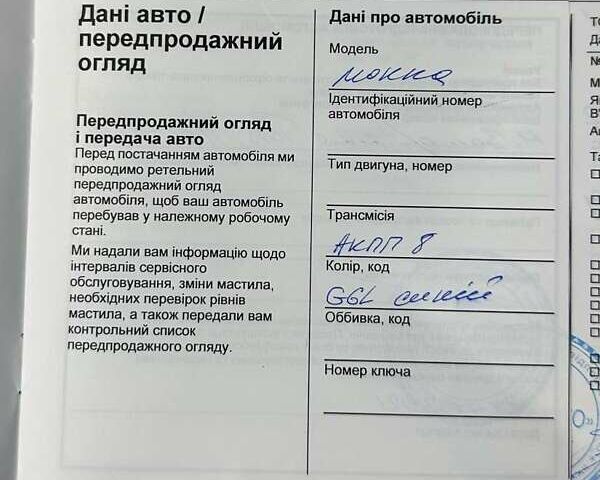 Дані авто /
передпродажний
огляд
Передпродажний огляд
і передача авто
Перед постачанням автомобіля ми
проводимо ретельний
передпродажний огляд
автомобіля, щоб ваш автомобіль
перебував у належному робочому
стані.
Ми надали вам інформацію щодо
інтервалів сервісного
обслуговування, зміни мастила,
необхідних перевірок рівнів
мастила, а також передали вам
контрольний список
передпродажного огляду.
Дані про автомобіль
Модель
мокка
Ідентифікаційний номер
автомобіля
Тип двигуна, номер
Трансмісія
АКПП 8
Колір, код
G6L синій
Оббивка, код
Номер ключа